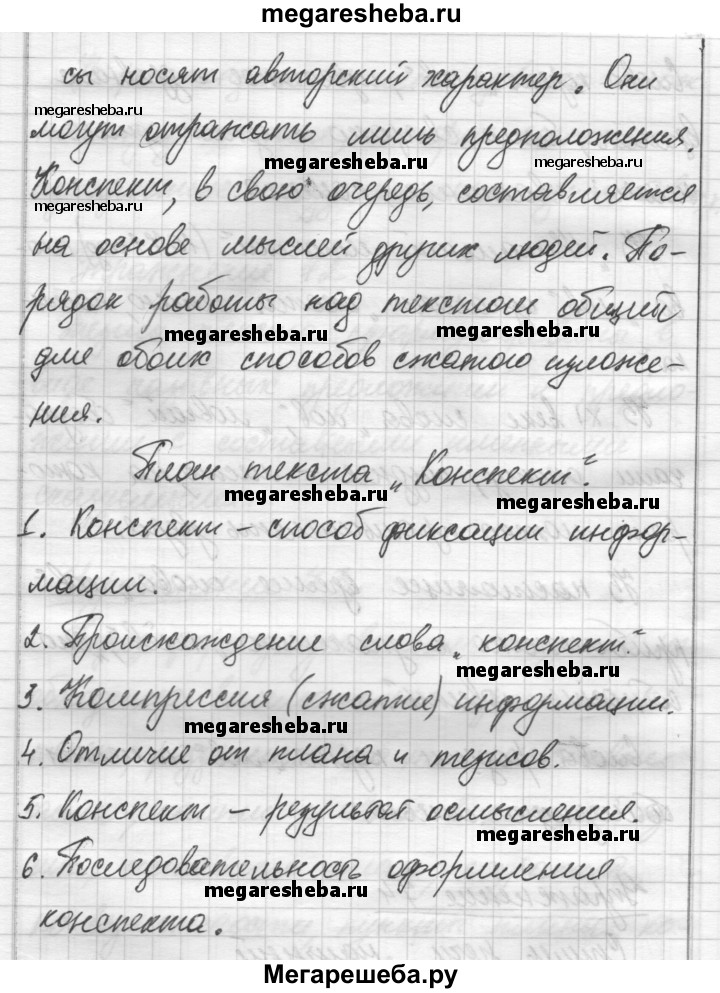 megaresheba.ru
сы носят авторский характер. Они
megaresheba.ru
могут отражать лишь предположения.
megaresheba.ru megaresheba.ru
Конспект, в свою очередь, составляется
megaresheba.ru
на основе мыслей других людей. По-
рядок работы над текстом общий
megaresheba.ru megaresheba.ru
для обоих способов сжатого изложе-
ния.
План текста „Конспект“.
megaresheba.ru megaresheba.ru
1. Конспект – способ фиксации инфор-
мации.
2. Происхождение слова „конспект“.
megaresheba.ru
3. Компрессия (сжатие) информации.
megaresheba.ru
4. Отличие от плана и тезисов.
5. Конспект – результат осмысления.
megaresheba.ru
6. Последовательность оформления
megaresheba.ru
конспекта.
Мегарешеба.ру